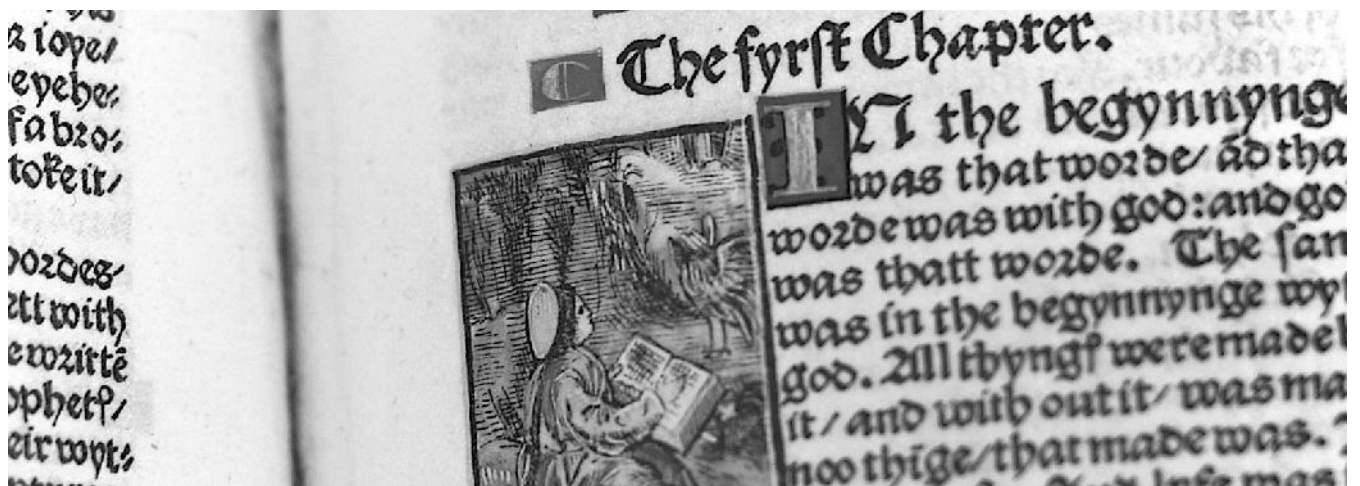 ioye/
eyehe:
fa bro:
toke it/
wordes
ett with
e writtē
ophetꝭ/
eir wyt:
C The fyrst Chapter.
IN the begynnynge
was that worde/ ād tha
worde was with god: and go
was thatt worde. The sam
was in the begynnynge wyt
god. All thyngꝭ were made b
it/ and with out it/ was ma
noo thīge/ that made was.
lyfe was